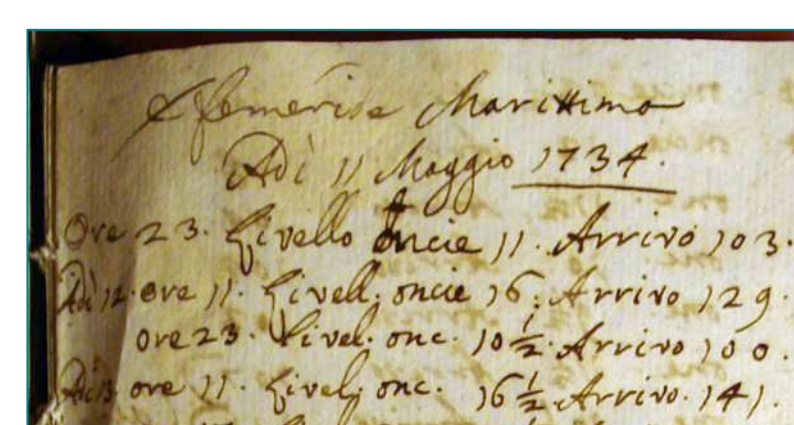 Efemeride Marittima
Adì 11 Maggio 1734.
Ore 23. Livello oncie 11. Arrivo 103.
Adì 12. ore 11. Livell. oncie 16. Arrivo 129.
ore 23. Livel. onc. 10 1/2. Arrivo 100.
Adì 13 ore 11. Livel. onc. 16 1/2. Arrivo. 141.